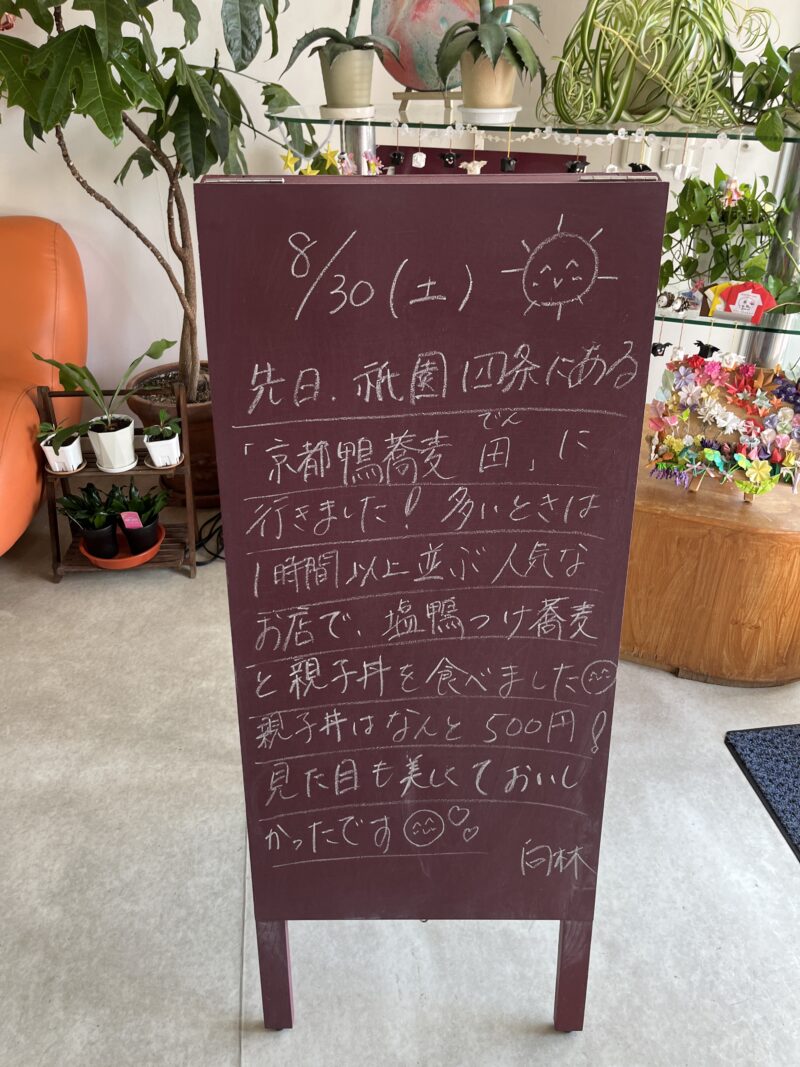 8/30(土)
先日、祇園四条にある
「京都鴨蕎麦 田でん」に
行きました! 多いときは
1時間以上並ぶ人気な
お店で、塩鴨つけ蕎麦
と親子丼を食べました
親子丼はなんと500円!
見た目も美しくておいし
かったです
向林